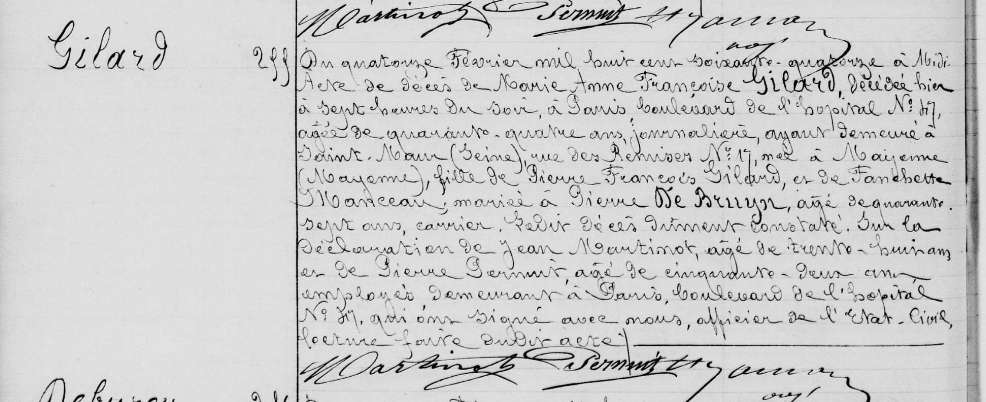 Martinot Pernuit
Gilard 255 Du quatorze Février mil huit cent soixante-quatorze à Midi
Acte de décès de Marie Anne Françoise Gilard, décédée hier
à sept heures du soir, à Paris, boulevard de l'hopital No 47,
agée de quarante-quatre ans, journalière, ayant demeuré à
Saint-Maur (Seine), rue des Remises No 17, née à Mayenne
(Mayenne), fille de Pierre François Gilard, et de Fanchette
Manceau; mariée à Pierre De Bruyn, agé de quarante-
sept ans, carrier. Ledit décès dûment constaté. Sur la
déclaration de Jean Martinot, agé de trente-huit ans
et de Pierre Pernuit, agé de cinquante-deux ans
employés, demeurant à Paris, boulevard de l'hopital
No 47, qui ont signé avec nous, officier de l'Etat-Civil,
lecture faite dudit acte.
Martinot Pernuit